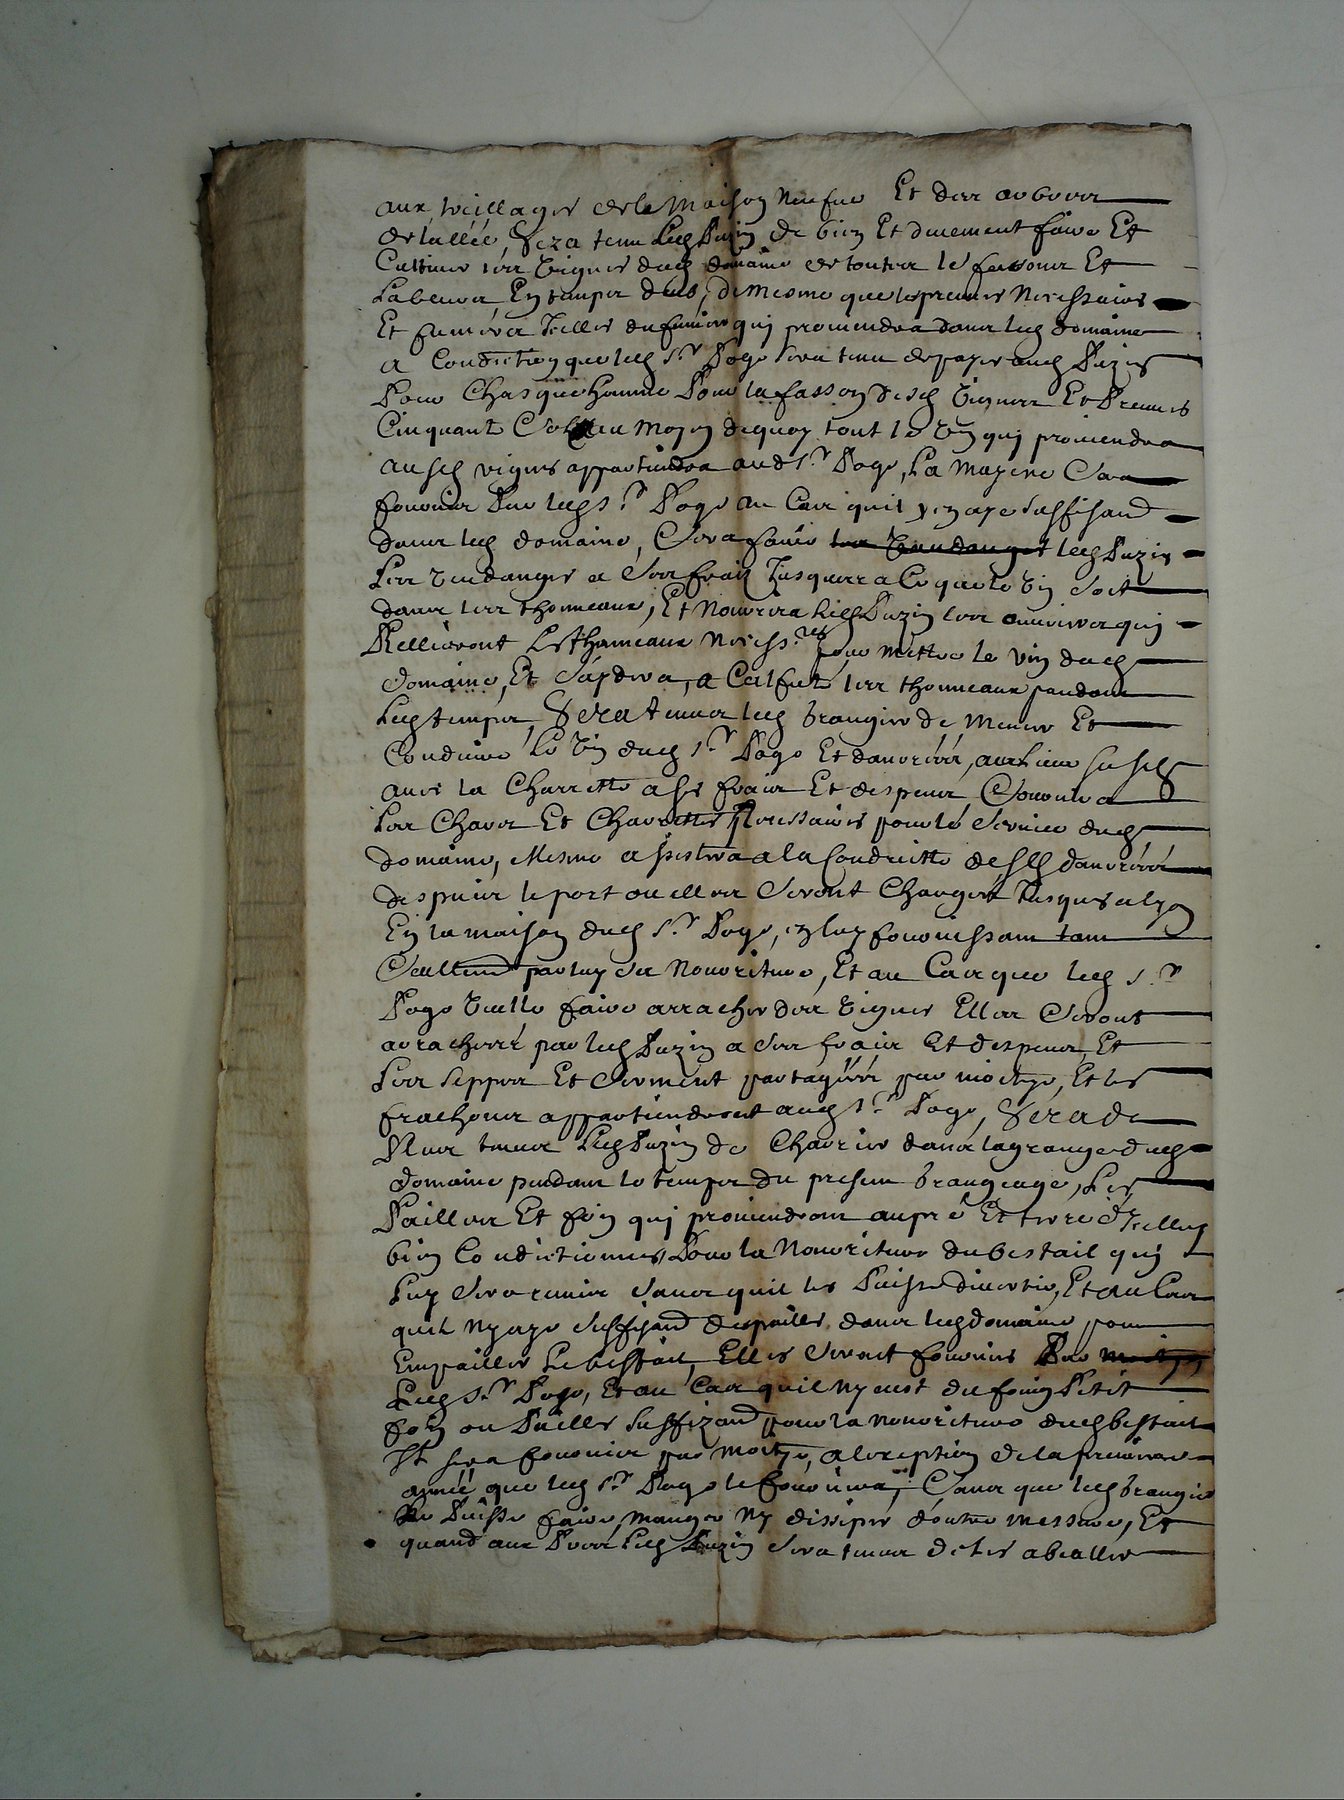 aux treillages de la Maison Neufve Et des arbres
de lallée, Sera tenu Led Puzin de bien Et duement faire Et
Cultiver les vignes dud domaine de toutes les fassons Et
Labeurs En temps deub, de mesme que les preuves Necessaires
Et fumera Icelles du fumier qui proviendra dans led domaine
a Condiction que led Sr Pogo sera tenu de payer aud Puzin
Pour Chasque homme Pour la fasson desd vignes Et Preuves
Cinquante Moyen dequoy tout le vin qui proviendra
ausd vignes appartiendra aud Sr Pogo, La Mayere Sera
fournie Par led Sr Pogo au Cas quil y en aye suffisand
dans led domaine, Sera faire les vandanges led Puzin
Les vandanges a Ses frais Jusques a Ce que le vin soit
dans les thonneaux, Et Nourrira led Puzin les ouvriers qui
Rellieront Les thonneaux Necessres pour Mettre le vin dud
domaine, Et Saydera, a les thonneaux pendant
Led temps, Sera tenu led Grangier de Mener Et
Conduire Le vin dud Sr Pogo Et danrées, aux lieux susd
avec la Charrette a ses frais Et despens
Les Chars Et Charrettes Necessaires pour le Service dud
domaine, Mesme assistera a la Conduitte desd danrées
despuis le port ou elles Seront Chargées Jusques a Lyon
En la maison dud Sr Pogo, en luy fournissant tant
Seullemt par luy sa Nourriture, Et au Cas que led Sr
Pogo vuelle faire arracher des vignes Elles Seront
arrachées par led Puzin a Ses frais Et despens, Et
Les seppes Et Serment partagées par moitye, Et les
frachons appartiendront aud Sr Pogo, Sera de
Plus tenu Led Puzin de Charrier dans la grange dud
domaine pendant le temps du present Grangeage, Les
Pailles Et foin qui proviendront au pré Et terre dicelluy
bien Conditionnés Pour la Nourriture du bestail qui
Luy Sera remis sans quil les Puisse divertir, Et au Cas
quil Ny aye Suffisand de pailles dans led domaine pour
Empailler Le bestail, Elles Seront fournies Par
Led Sr Pogo, Et au Cas quil Ny eust du foin Petit
foin ou Paille Suffizand pour la Nourriture dud bestail
Il sera fournir par moitye, a lexception de la premiere
année que led Sr Pogo le fournira, Sans que led Grangier
Ne Puisse faire Manger Ny dissiper doutre mesure, Et
quand aux Led Puzin Sera tenu de les